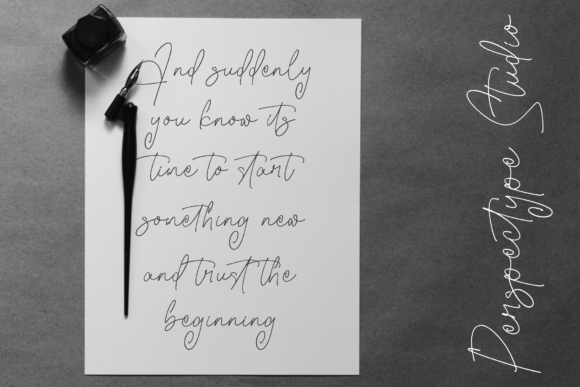 And suddenly
you know its
time to start
something new
and trust the
beginning
Perspectype Studio